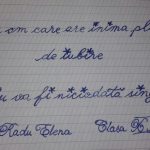 om care are inima pli
de iubire
u va fi niciodată sing
Radu Elena Clasa